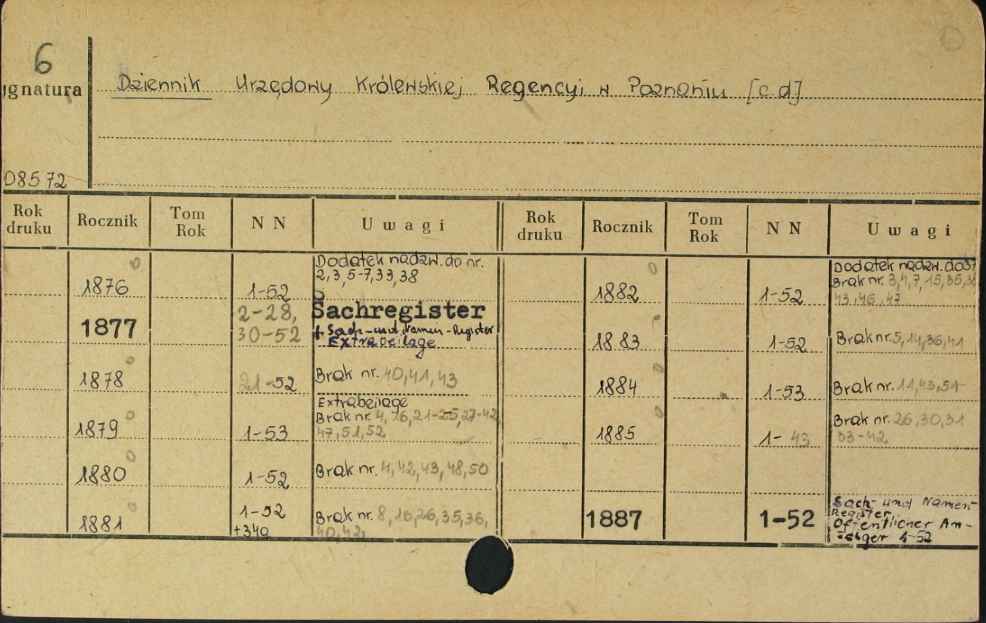 6
ignatura
Dziennik Urzędowy Królewskiej Regencyi w Poznaniu [c d]
08572
Rok druku Rocznik Tom Rok N N Uwagi Rok druku Rocznik Tom Rok N N Uwagi
Dodatek nadzw. do nr.
2,3,5-7,33,38
1876 1-52
1877 2-28, 30-52 Sachregister
+ Sach-und Namen-Register
Extrabeilage
1878 21-52 Brak nr. 40,41,43
Extrabeilage
1879 1-53 Brak nr. 4,16,21-25,27-42
47,51,52
1880 1-52 Brak nr. 4,42,43,48,50
1881 1-52 Brak nr. 8,16,26,35,36,
+340 40,42,
Dodatek nadzw. do
1882 1-52 Brak nr. 3,4,7,15,35,
43,46,47
1883 1-52 Brak nr. 5,14,36,41
1884 1-53 Brak nr. 11,43,51
1885 1-43 Brak nr. 26,30,31
33-42
1887 1-52 Sach- und Namen-
Register
Öffentlicher An-
zeiger 1-52